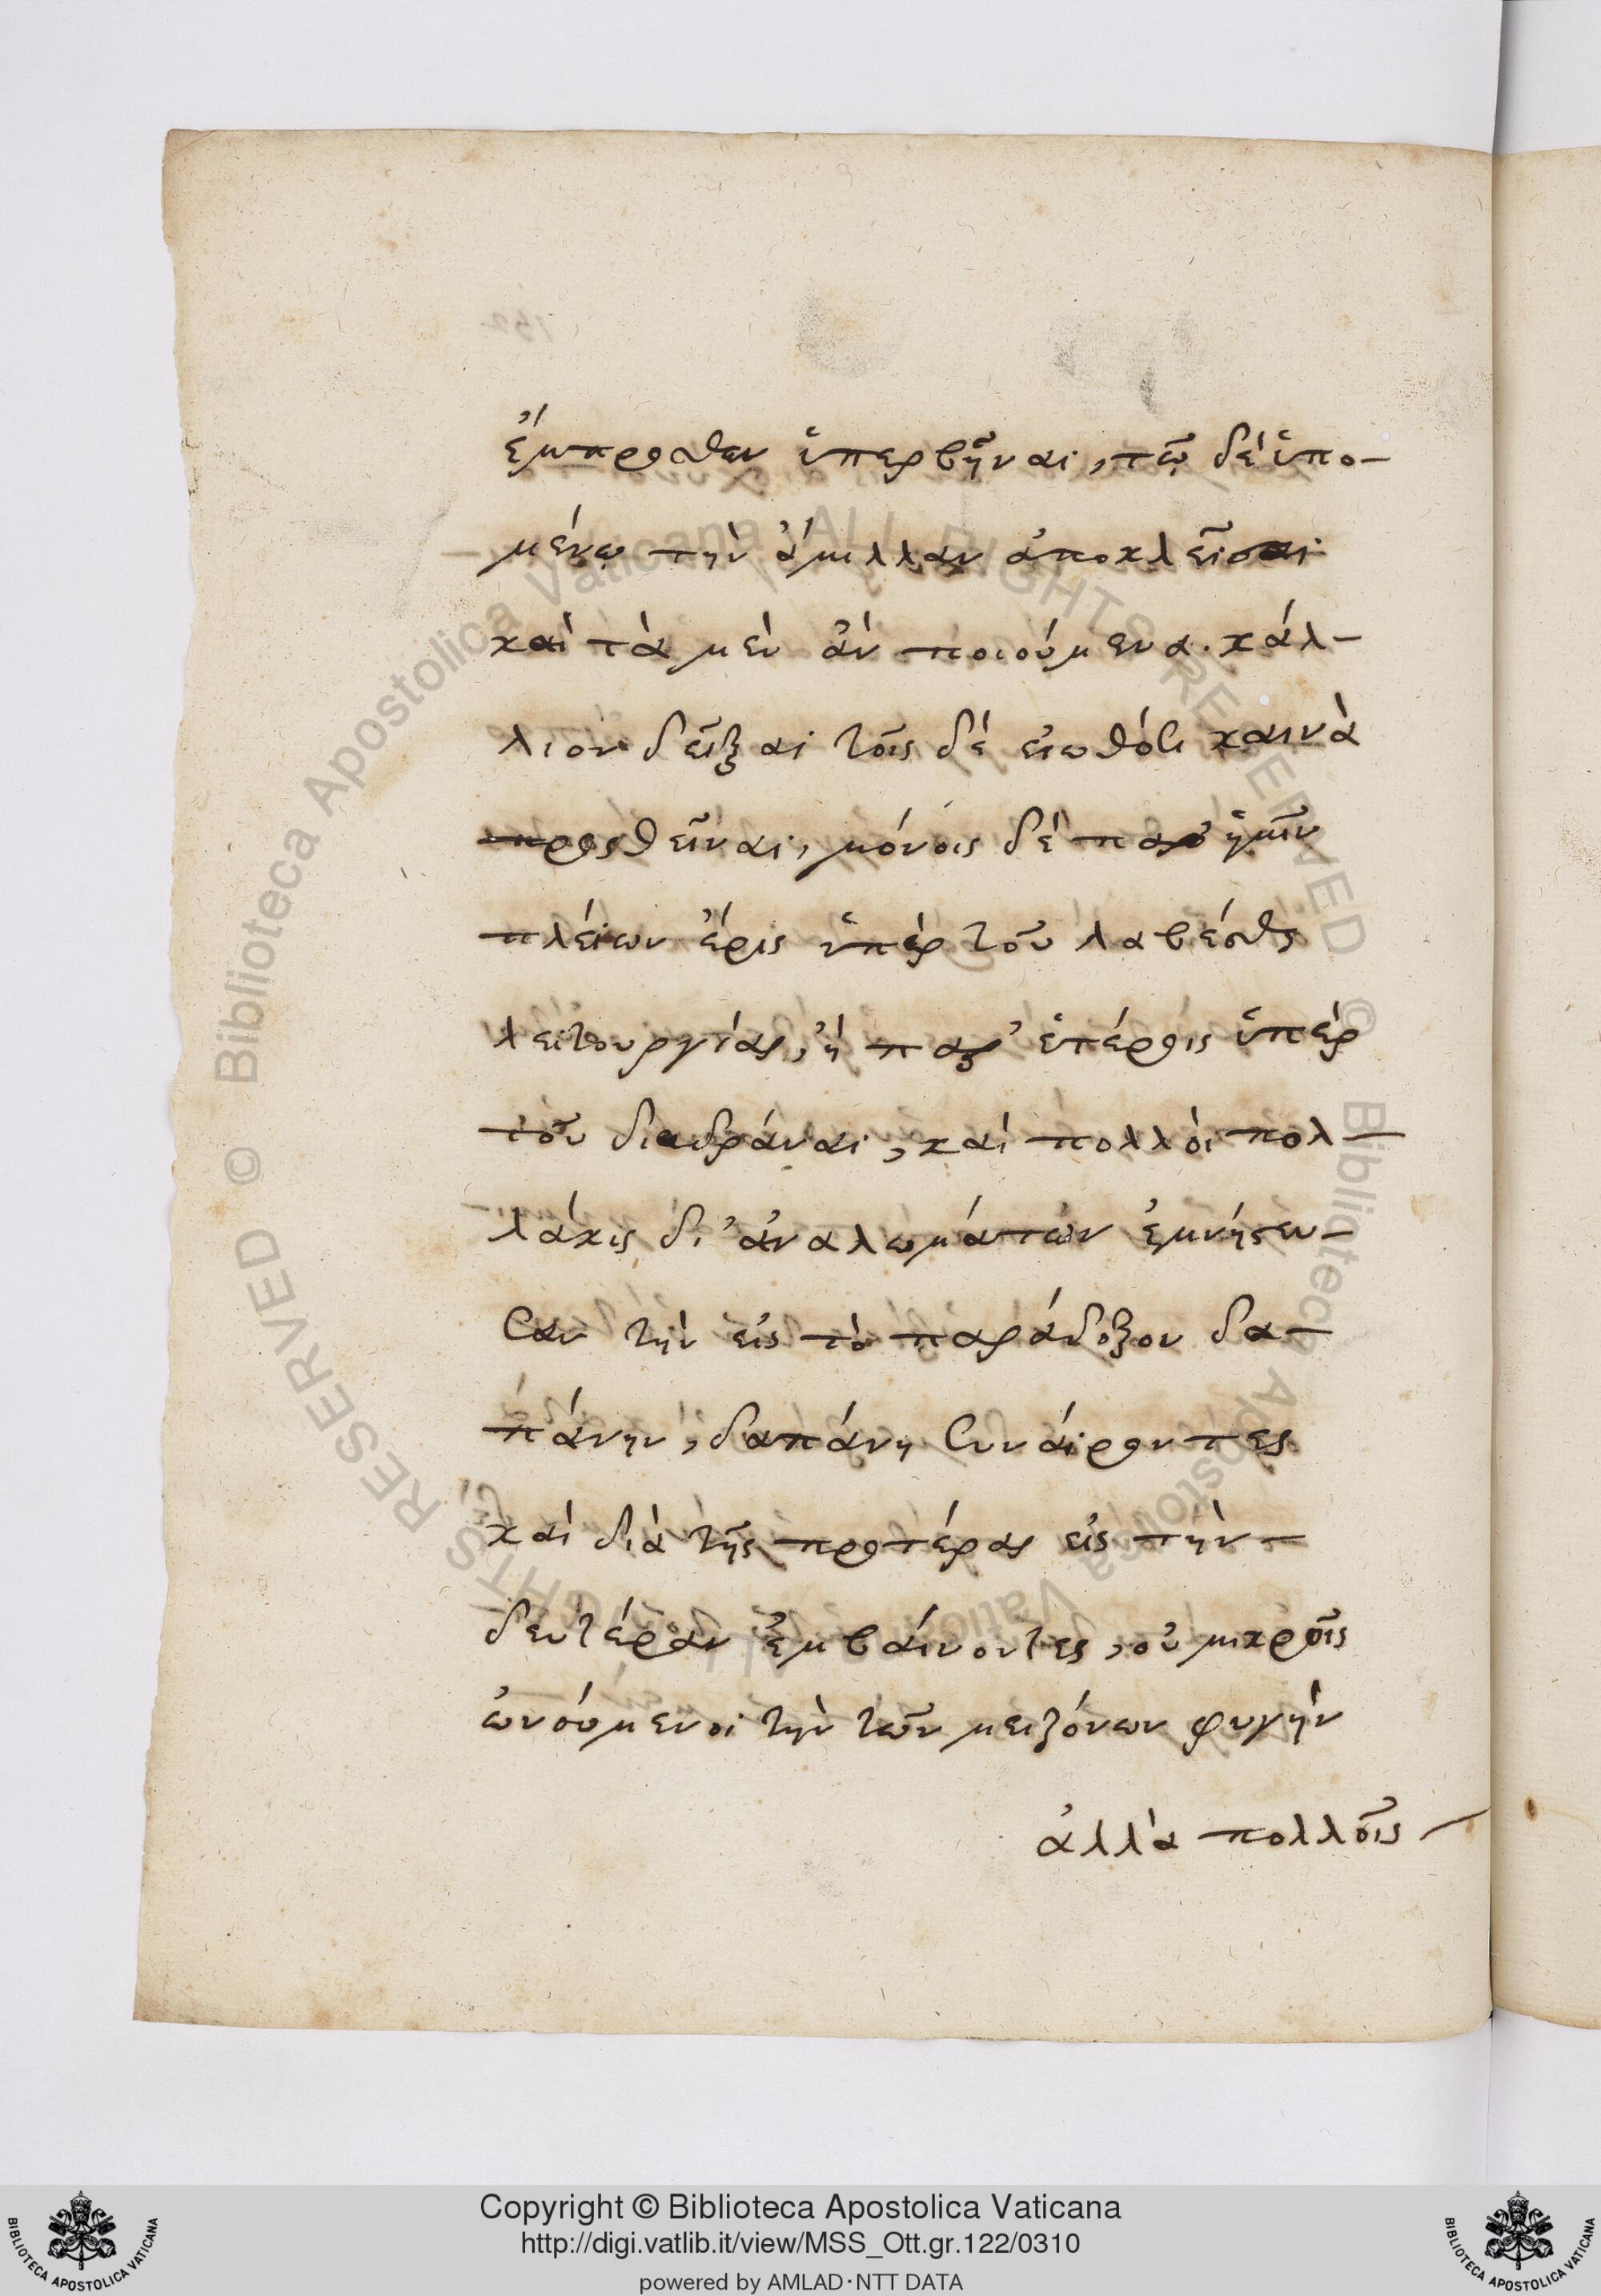 ἔμπροσθεν ὑπερβῆναι, τῷ δὲ ὑπο-
μένῳ τὴν ἅμιλλαν ἀποκλεῖσαι
καὶ τὰ μὲν ἂν ποιούμενα. κάλ-
λιον δεῖξαι τοῖς δὲ εἰωθόσι καινὰ
προσθεῖναι, μόνοις δὲ παρ' ἡμῖν
πλείων ἔρις ὑπὲρ τοῦ λαβέσθαι
λειτουργίας, ἢ παρ' ἑτέροις ὑπὲρ
τοῦ διαδράναι, καὶ πολλοὶ πολ-
λάκις δι' ἀναλωμάτων ἐμνήστευ-
σαν τὴν εἰς τὸ παράδοξον δα-
πάνην, δαπάνη συναίροντες
καὶ διὰ τῆς προτέρας εἰς τὴν-
δευτέραν ἐμβαίνοντες, οὐ μικροῖς
ὠνούμενοι τὴν τῶν μειζόνων φυγὴν
ἀλλὰ πολλοῖς
© Biblioteca Apostolica Vaticana ALL RIGHTS RESERVED
© Biblioteca Apostolica Vaticana ALL RIGHTS RESERVED
Copyright © Biblioteca Apostolica Vaticana
http://digi.vatlib.it/view/MSS_Ott.gr.122/0310
powered by AMLAD·NTT DATA
BIBLIOTECA APOSTOLICA VATICANA
BIBLIOTECA APOSTOLICA VATICANA